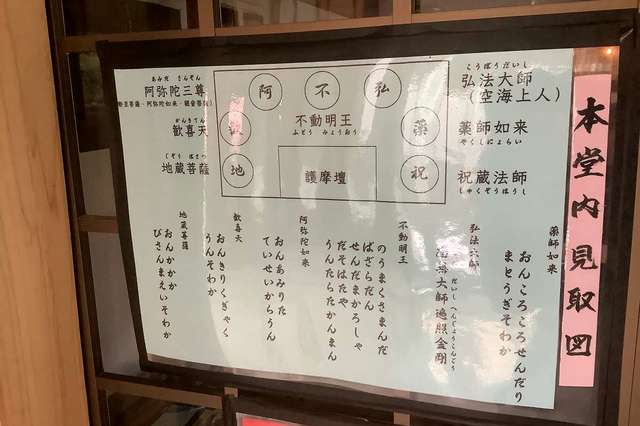 本堂内見取図
こうぼうだいし
弘法大師
（空海上人）
薬師如来
やくしにょらい
祝蔵法師
しゃくぞうほうし
弘
不
阿
薬
歓
祝
地
不動明王
ふどう みょうおう
護摩壇
あみだ さんぞん
阿弥陀三尊
かんきてん
歓喜天
じぞう ぼさつ
地蔵菩薩
薬師如来
おんころころせんだり
まとうぎそわか
弘法大師
だいし へんじょうこんごう
大師遍照金剛
不動明王
のうまくさまんだ
ばざらだん
せんだまかろしゃ
だそはたや
うんたらたかんまん
阿弥陀如来
おんあみりた
ていせいからうん
歓喜天
おんきりくぎゃく
うんそわか
地蔵菩薩
おんかかか
びさんまえいそわか